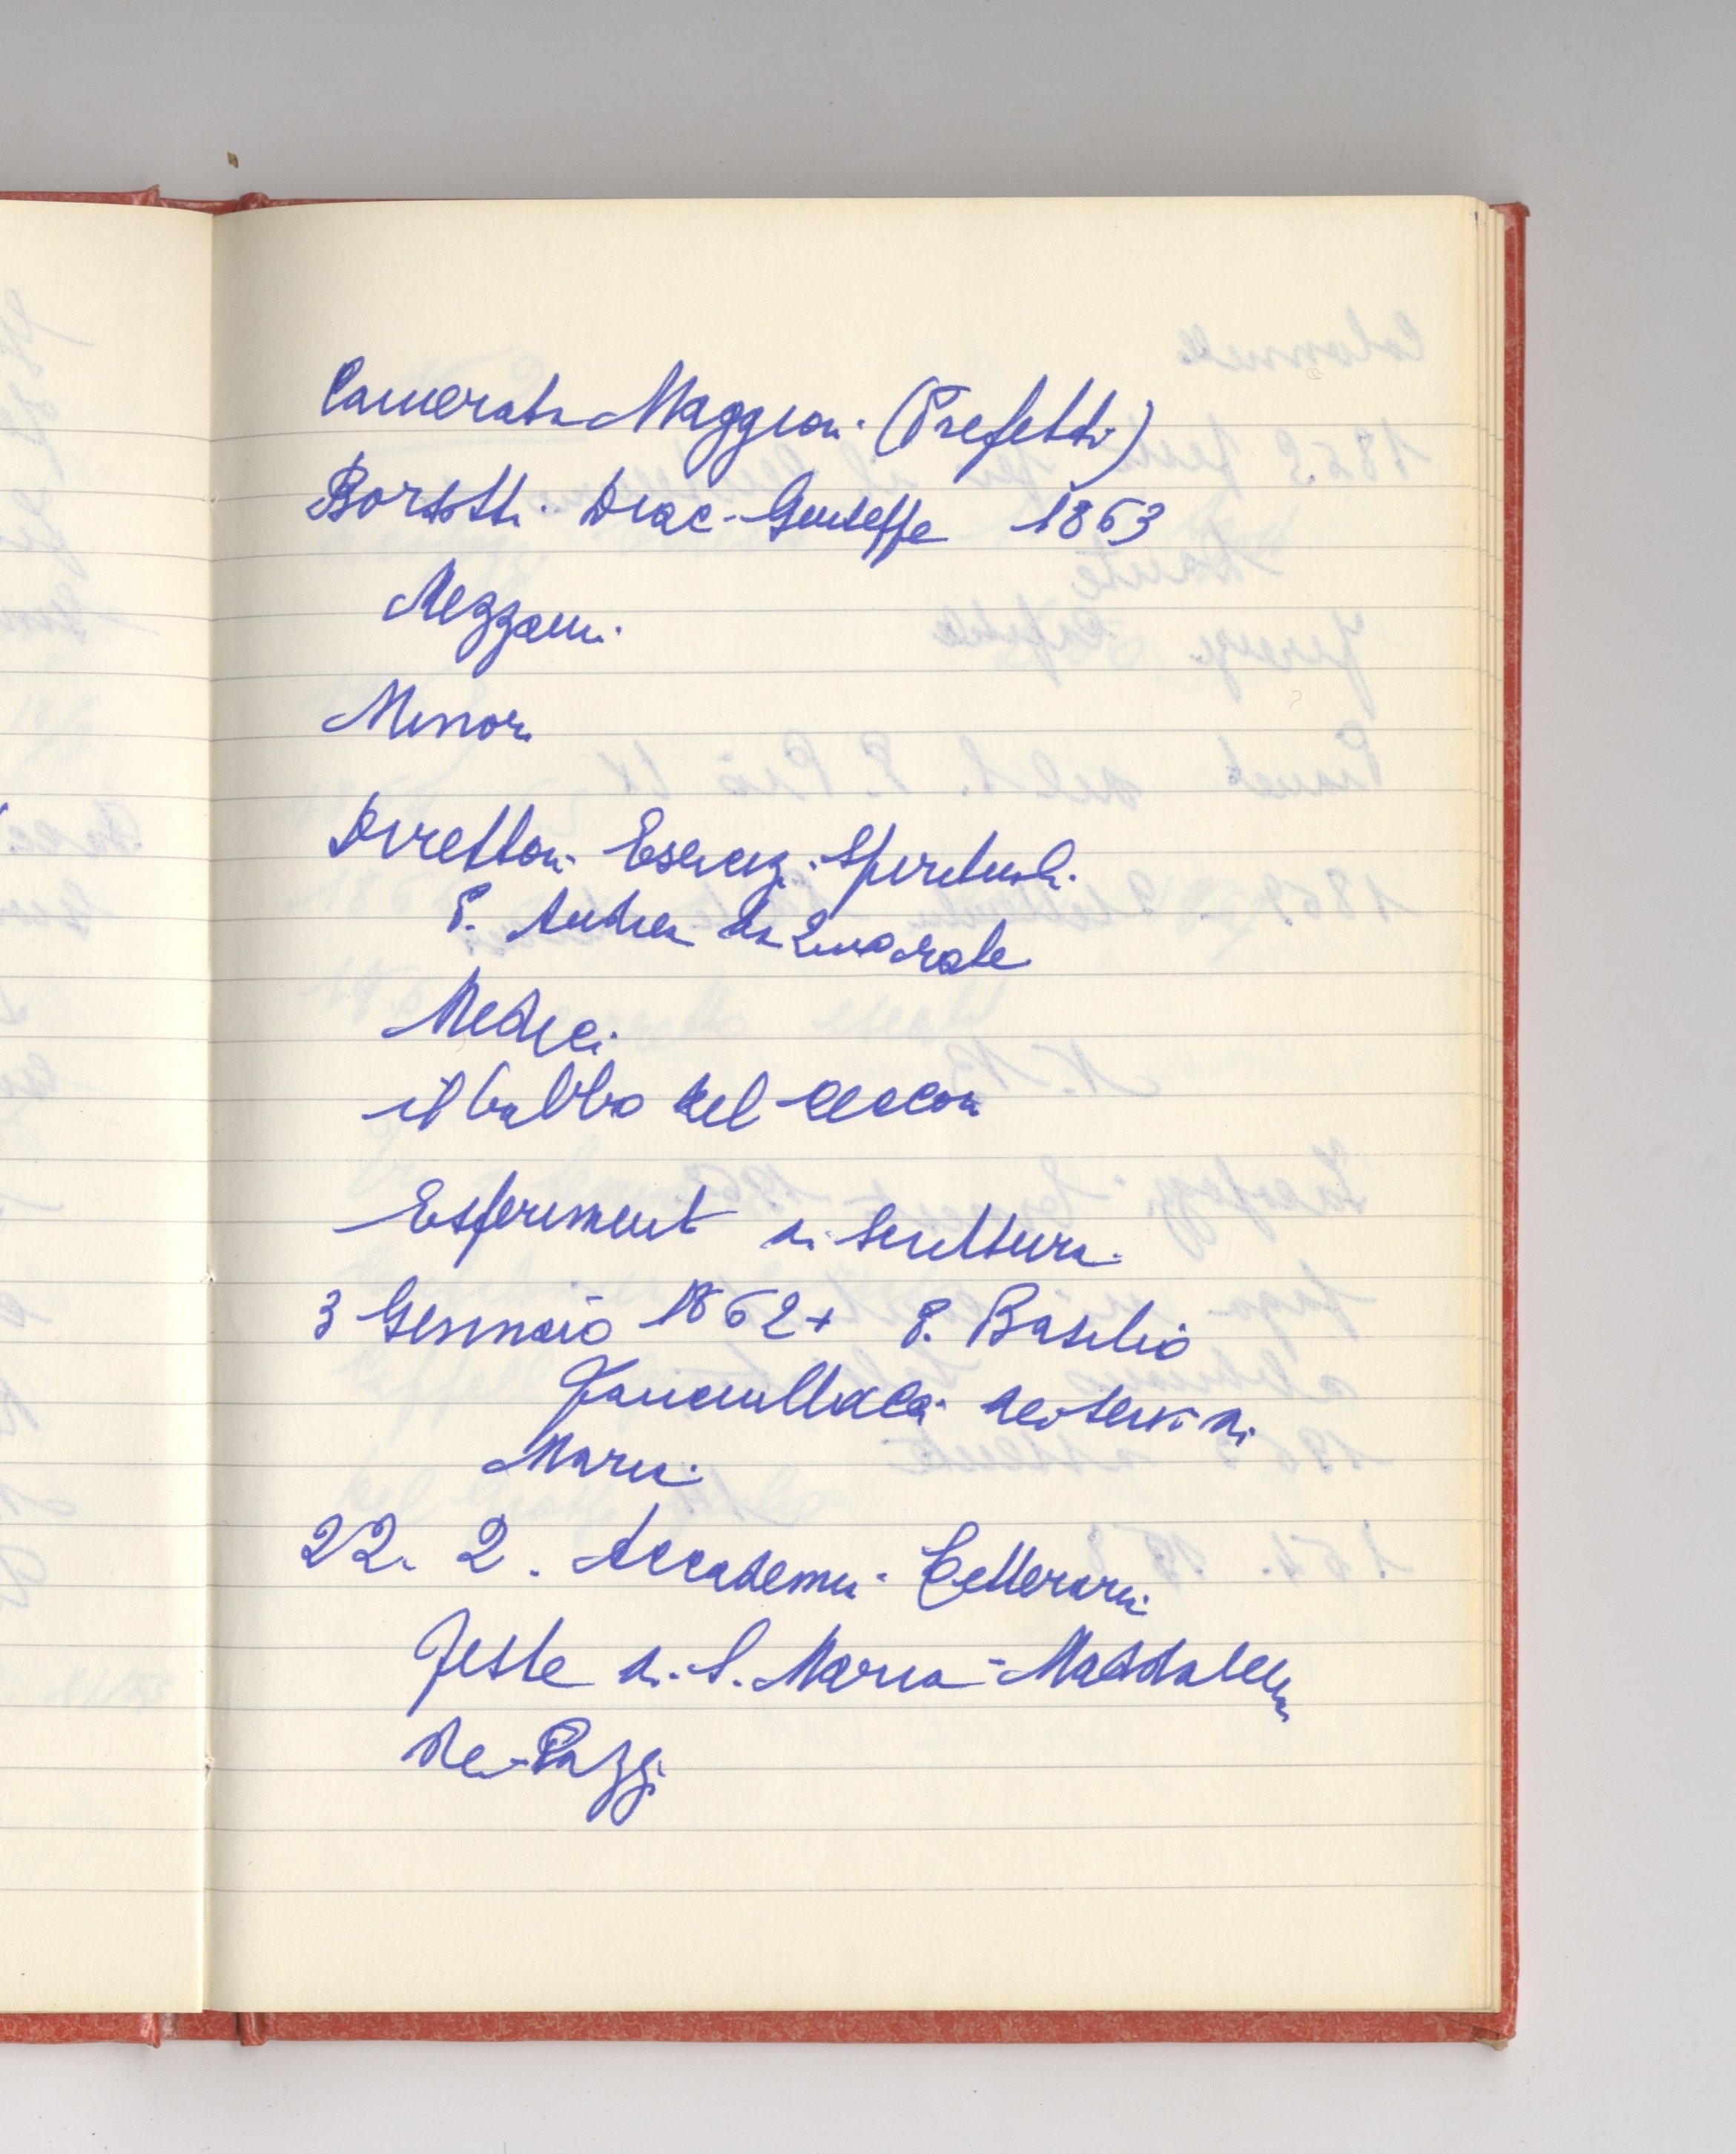 Camerata Maggiori (Prefetti)
Borsotti Diac. Giuseppe 1863
Mezzani
Minori
Direttori Esercizi Spirituali
P. Andrea da Quadrate
Medici
il babbo del
Esperimenti di Scrittura
3 Gennaio 1862+ P. Basilio
dei Servi di
Maria
22. 2. Accademia Letteraria
Feste di S. Maria Maddalena
de Pazzi